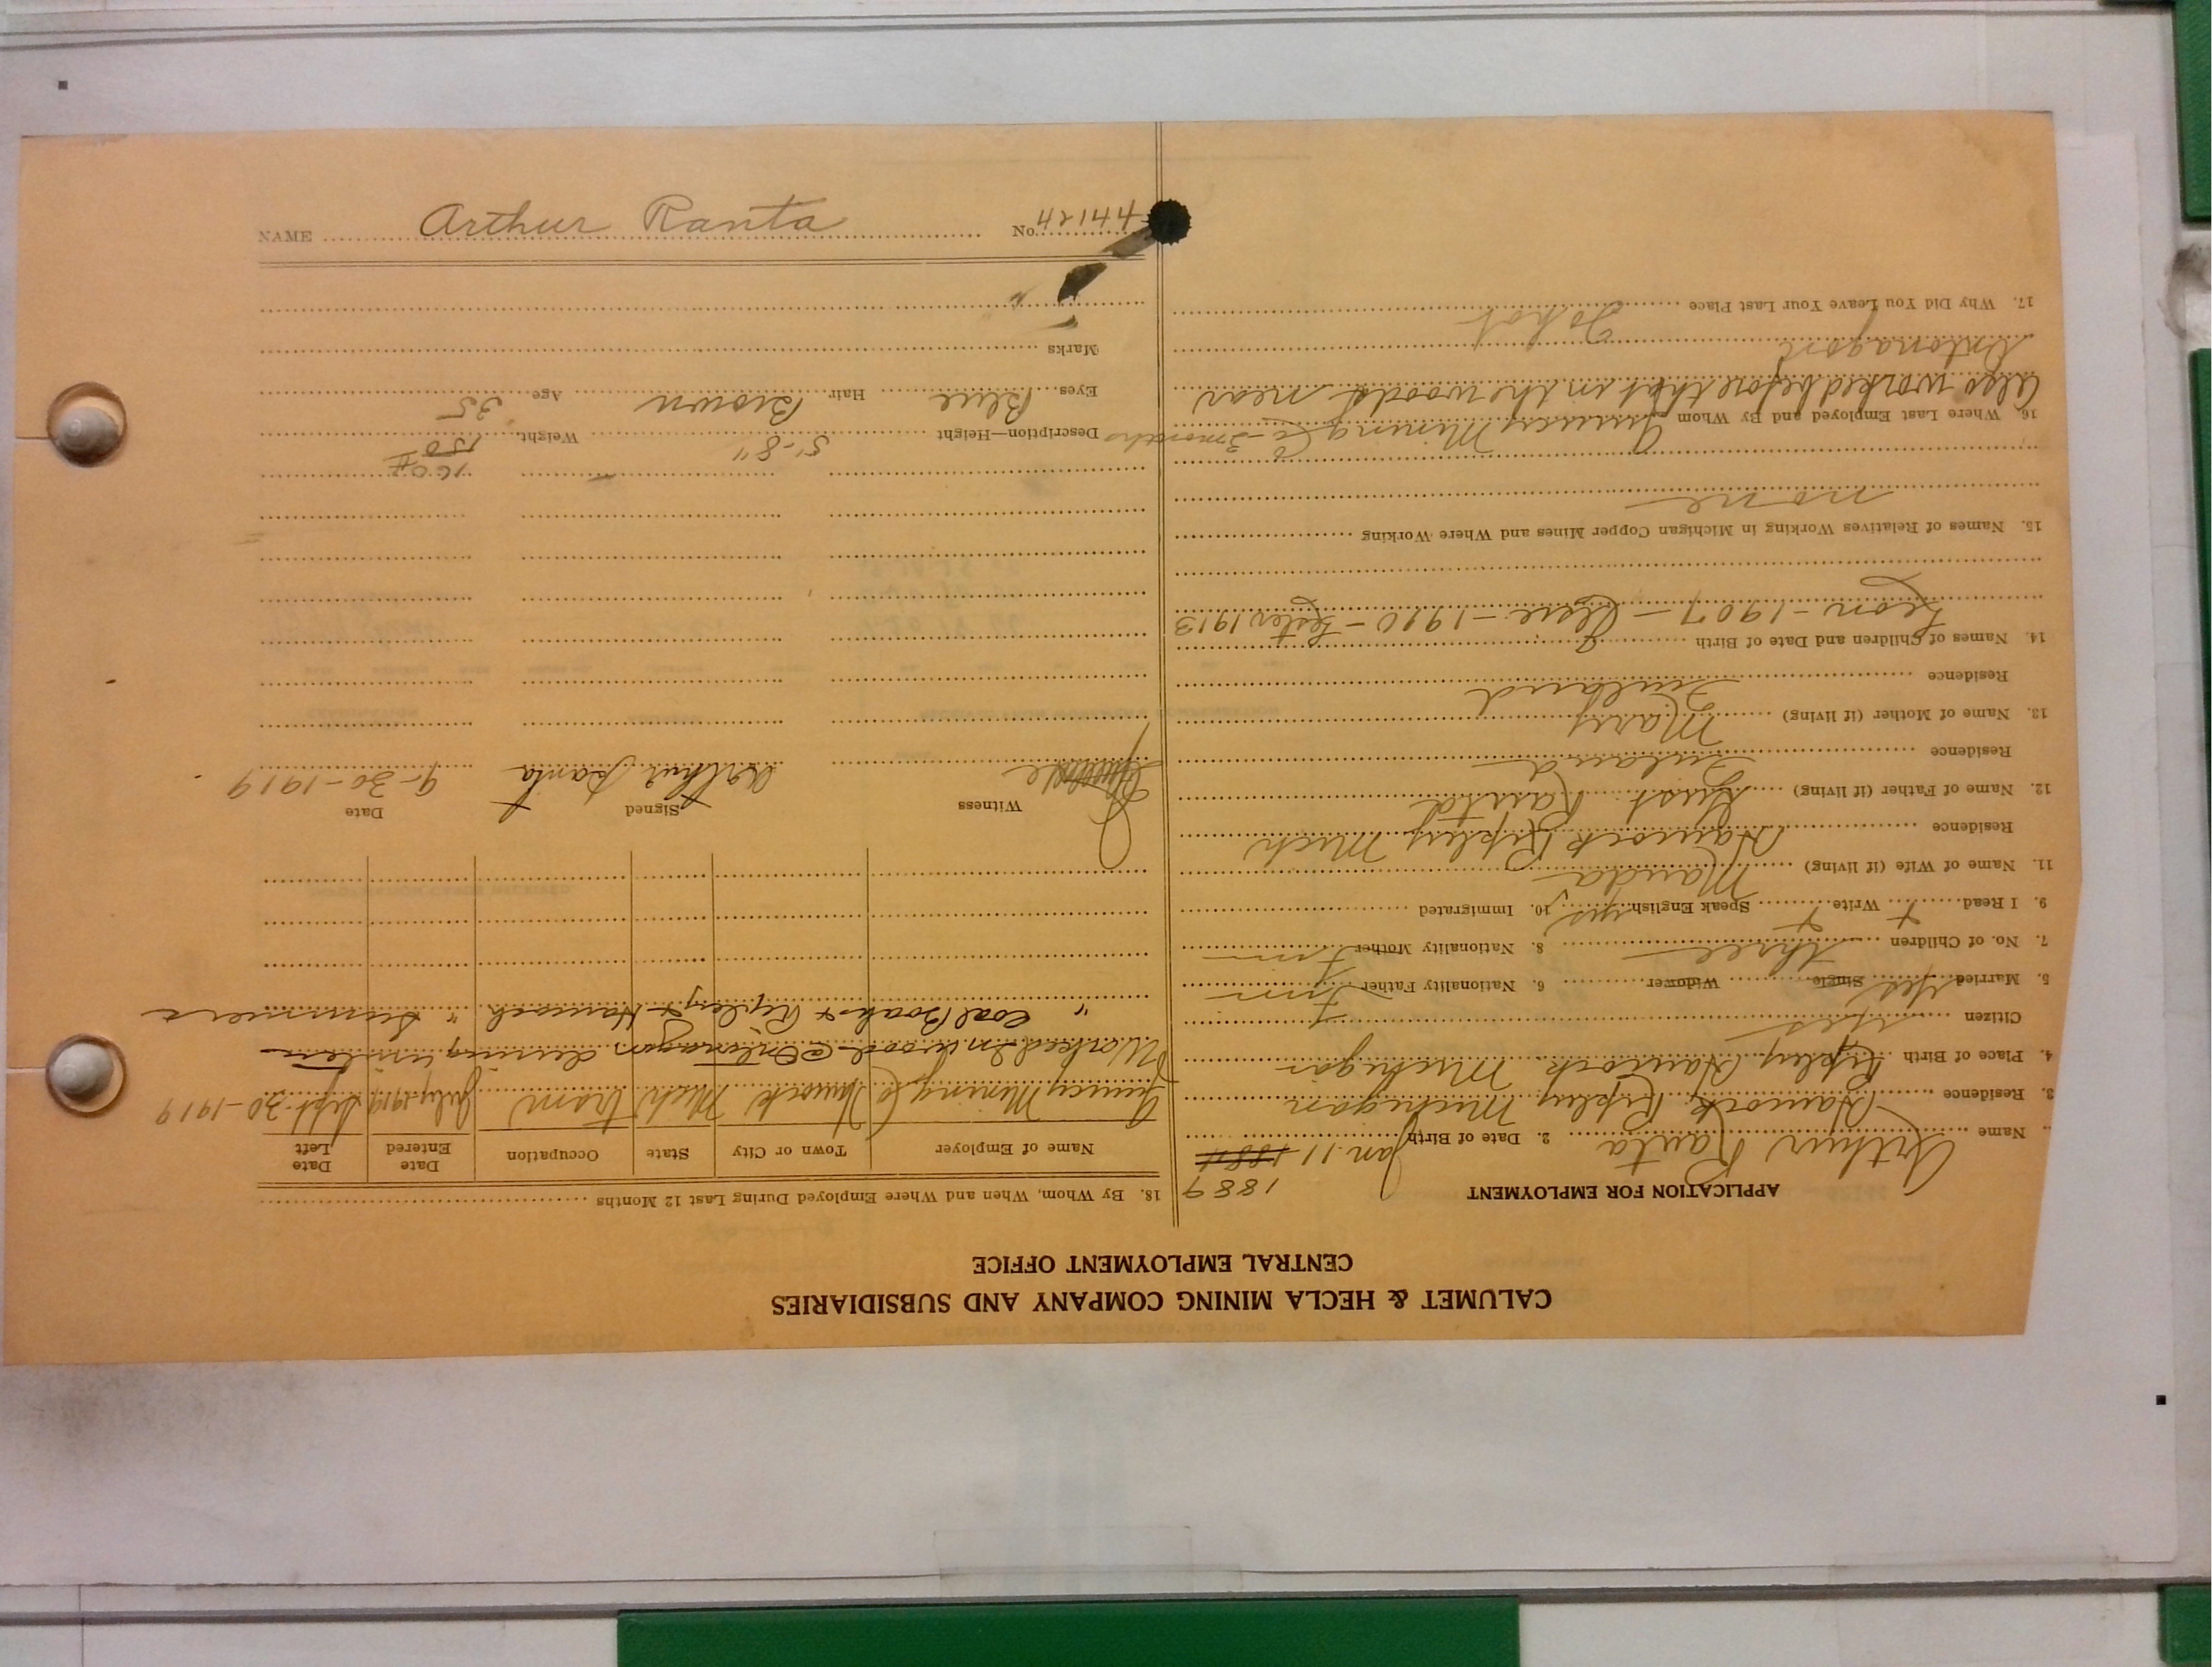 CALUMET & HECLA MINING COMPANY AND SUBSIDIARIES
CENTRAL EMPLOYMENT OFFICE
APPLICATION FOR EMPLOYMENT
1889
Name Arthur Ranta 2. Date of Birth Jan. 11 1884
3. Residence Hancock Ripley Michigan
4. Place of Birth Ripley Hancock Michigan
Citizen Yes
5. Married Yes Single Widower 6. Nationality Father Finn
7. No. of Children three 8. Nationality Mother Finn
9. I Read + Write + Speak English yes 10. Immigrated
11. Name of Wife (if living) Manda
Residence Hancock Ripley Mich
12. Name of Father (if living) Gust Ranta
Residence Finland
13. Name of Mother (if living) Mary
Residence Finland
14. Names of Children and Date of Birth
Leon - 1907 - - 1910 - Lester 1913
15. Names of Relatives Working in Michigan Copper Mines and Where Working
none
16. Where Last Employed and By Whom Quincy Mining Co - 3 months
Also worked before that in the woods near
Ontonagon
17. Why Did You Leave Your Last Place To hot
18. By Whom, When and Where Employed During Last 12 Months
Name of Employer Town or City State Occupation Date Entered Date Left
Quincy Mining Co Hancock Mich tram July 1919 Sept. 30-1919
Worked In woods @ Ontonagon during winter
" Coal Docks + Ripley + Hancock " Summers
Witness Signed Date
Arthur Ranta 9-30-1919
160#
Description—Height 5'-8" Weight 150
Eyes Blue Hair Brown Age 35
Marks
NAME Arthur Ranta No. 44124